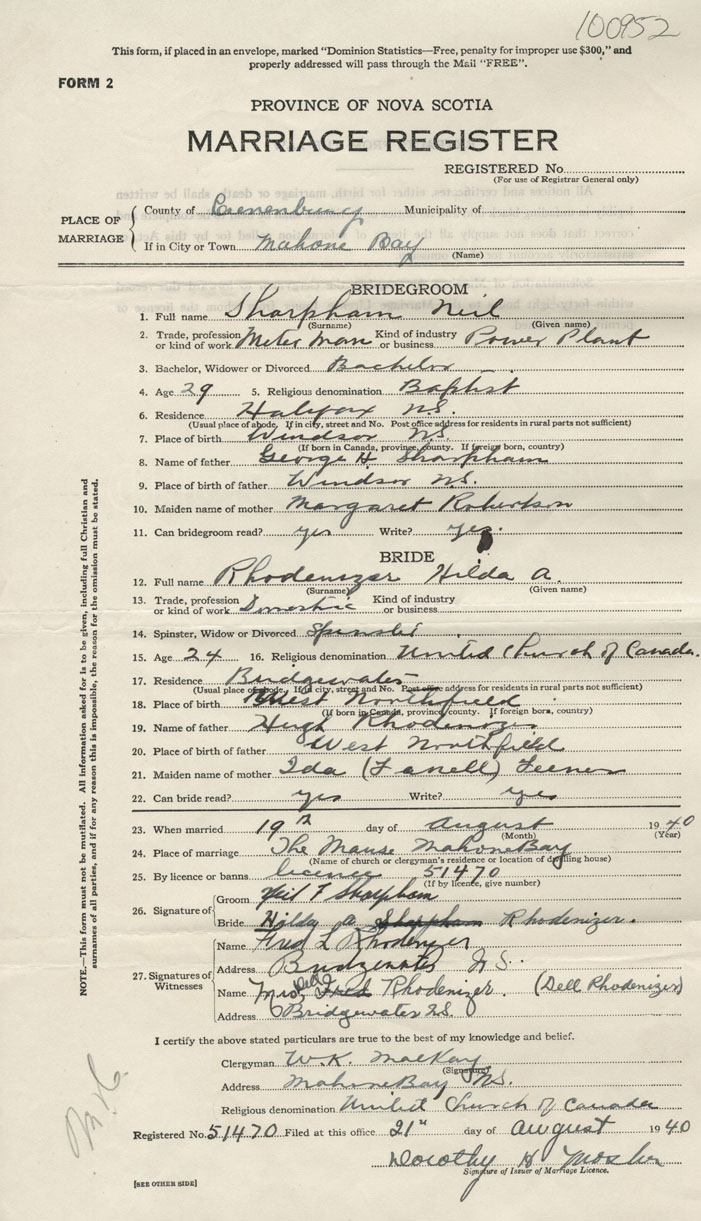 100952
This form, if placed in an envelope, marked "Dominion Statistics—Free, penalty for improper use $300," and
properly addressed will pass through the Mail "FREE".
FORM 2
PROVINCE OF NOVA SCOTIA
MARRIAGE REGISTER
REGISTERED No.
(For use of Registrar General only)
PLACE OF MARRIAGE
County of Lunenburg Municipality of
If in City or Town Mahone Bay
(Name)
BRIDEGROOM
1. Full name Sharpham Neil
(Surname) (Given name)
2. Trade, profession or kind of work Meter Man Kind of industry or business Power Plant
3. Bachelor, Widower or Divorced Bachelor
4. Age 29 5. Religious denomination Baptist
6. Residence Halifax N.S.
(Usual place of abode. If in city, street and No. Post office address for residents in rural parts not sufficient)
7. Place of birth Windsor N.S.
(If born in Canada, province, county. If foreign born, country)
8. Name of father George H. Sharpham
9. Place of birth of father Windsor N.S.
10. Maiden name of mother Margaret Robertson
11. Can bridegroom read? yes Write? yes.
BRIDE
12. Full name Rhodenizer Hilda A.
(Surname) (Given name)
13. Trade, profession or kind of work Domestic Kind of industry or business
14. Spinster, Widow or Divorced Spinster
15. Age 24 16. Religious denomination United Church of Canada.
17. Residence Bridgewater
(Usual place of abode. If in city, street and No. Post office address for residents in rural parts not sufficient)
18. Place of birth West Northfield
(If born in Canada, province, county. If foreign born, country)
19. Name of father Hugh Rhodenizer
20. Place of birth of father West Northfield
21. Maiden name of mother Ida
22. Can bride read? yes Write? yes
23. When married 19th day of August 1940
(Month) (Year)
24. Place of marriage The Manse Mahone Bay
(Name of church or clergyman's residence or location of dwelling house)
25. By licence or banns licence 51470
(If by licence, give number)
26. Signature of
Groom Neil F Sharpham
Bride Hilda A Sharpham Rhodenizer.
27. Signatures of Witnesses
Name Fred L Rhodenizer
Address Bridgewater N.S.
Name Mrs. Dell Fred Rhodenizer. (Dell Rhodenizer)
Address Bridgewater N.S.
I certify the above stated particulars are true to the best of my knowledge and belief.
Clergyman W.K. MacKay
(Signature)
Address Mahone Bay N.S.
Religious denomination United Church of Canada
Registered No. 51470 Filed at this office 21st day of August 1940
Dorothy H Mosher
Signature of Issuer of Marriage Licence.
[SEE OTHER SIDE]
NOTE.—This form must not be mutilated. All information asked for is to be given, including full Christian and
surnames of all parties, and if for any reason this is impossible, the reason for the omission must be stated.